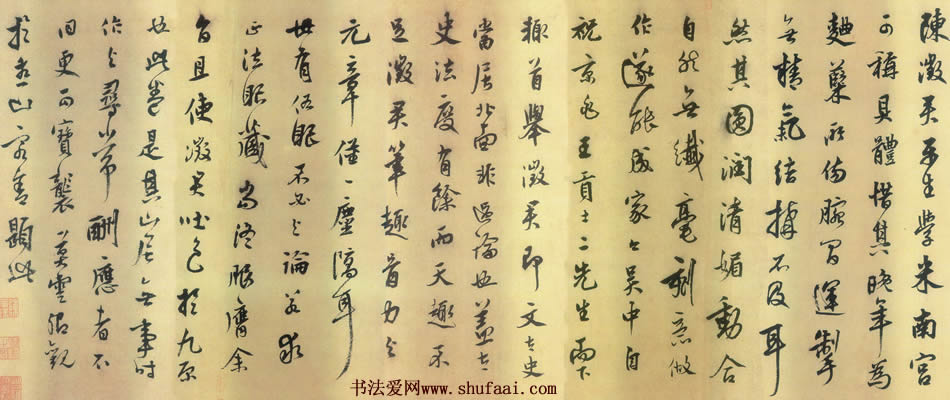 陳澂君平生學米南宮
可稱具體惜其晚年為
麯蘖所傷腕運掣
無精氣結搆不及耳
然其圓潤清媚動合
自然無纖毫刻意做
作遂能成家今吳中自
祝京兆王貢士二先生而下
輒首舉澂君即文太史
當居北面非過論也蓋太
史法度有餘而天趣不
足澂君筆趣骨力與
元章僅一塵隔耳
世有俗眼不必與論若求
正法眼藏當終服膺余
言且使澂君吐色於九原
也此卷是其山居無事時
作與尋常酬應者不
同更可寶襲莫雲卿觀
於山書題此
书法爱网www.shufaai.com